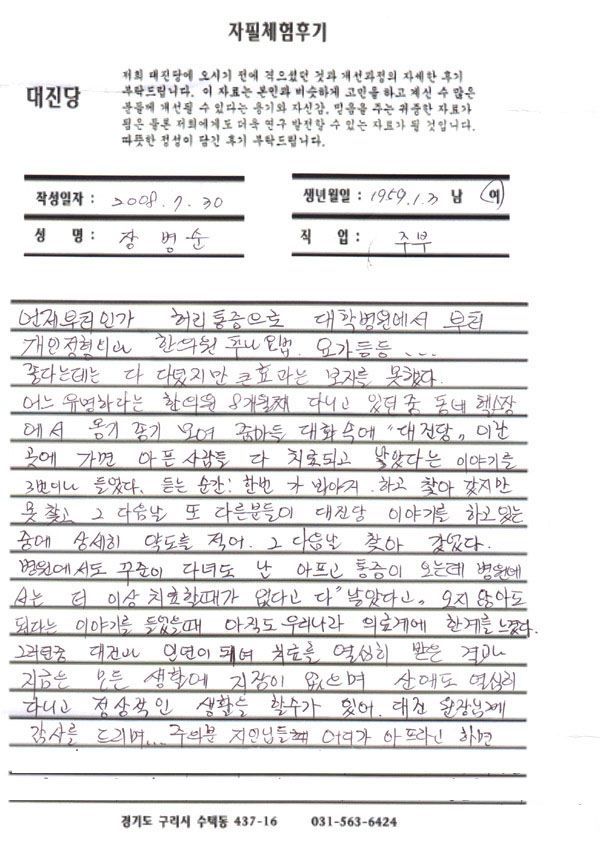 자필체험후기
대진당
저희 대진당에 오시기 전에 겪으셨던 것과 개선과정의 자세한 후기
부탁드립니다. 이 자료는 본인과 비슷하게 고민을 하고 계신 수 많은
분들께 개선될 수 있다는 용기와 자신감, 믿음을 주는 귀중한 자료가
됨은 물론 저희에게도 더욱 연구 발전할 수 있는 자료가 될 것입니다.
따뜻한 정성이 담긴 후기 부탁드립니다.
작성일자 : 2008. 7. 30
생년월일 : 1959. 1. 3 남 여
성 명 : 장 병 순
직 업 : 주부
언제부터인가 허리통증으로 대학병원에서 부터
개인정형외과 한의원 요가등등 ...
좋다는데는 다 다녔지만 큰효과는 보지를 못했다.
어느 유명하다는 한의원 8개월째 다니고 있던중 동네 헬스장
에서 옹기 종기 모여 줌마들 대화속에 "대진당" 이란
곳에 가면 아픈사람들 다 치료되고 낳았다는 이야기를
3번이나 들었다. 듣는 순간! 한번 가 봐야지 하고 찾아 갔지만
못찾고 그 다음날 또 다른분들이 대진당 이야기를 하고있는
중에 상세히 약도를 적어. 그 다음날 찾아 갔었다.
병원에서도 꾸준이 다녀도 난 아프고 통증이 오는데 병원에
서는 더 이상 치료할때가 없다고 다 "낳았다고" 오지않아도
되다는 이야기를 들었을때 아직도 우리나라 의료계에 한계를 느꼈다.
그러던중 대진과 인연이 되여 치료를 열심히 받은 결과
지금은 모든 생활에 지장이 없으며 산에도 열심히
다니고 정상적인 생활을 할수가 있어. 대진 원장님께
감사를 드리며... 주의분 지인님들께 어디가 아프라고 하면
경기도 구리시 수택동 437-16 031-563-6424